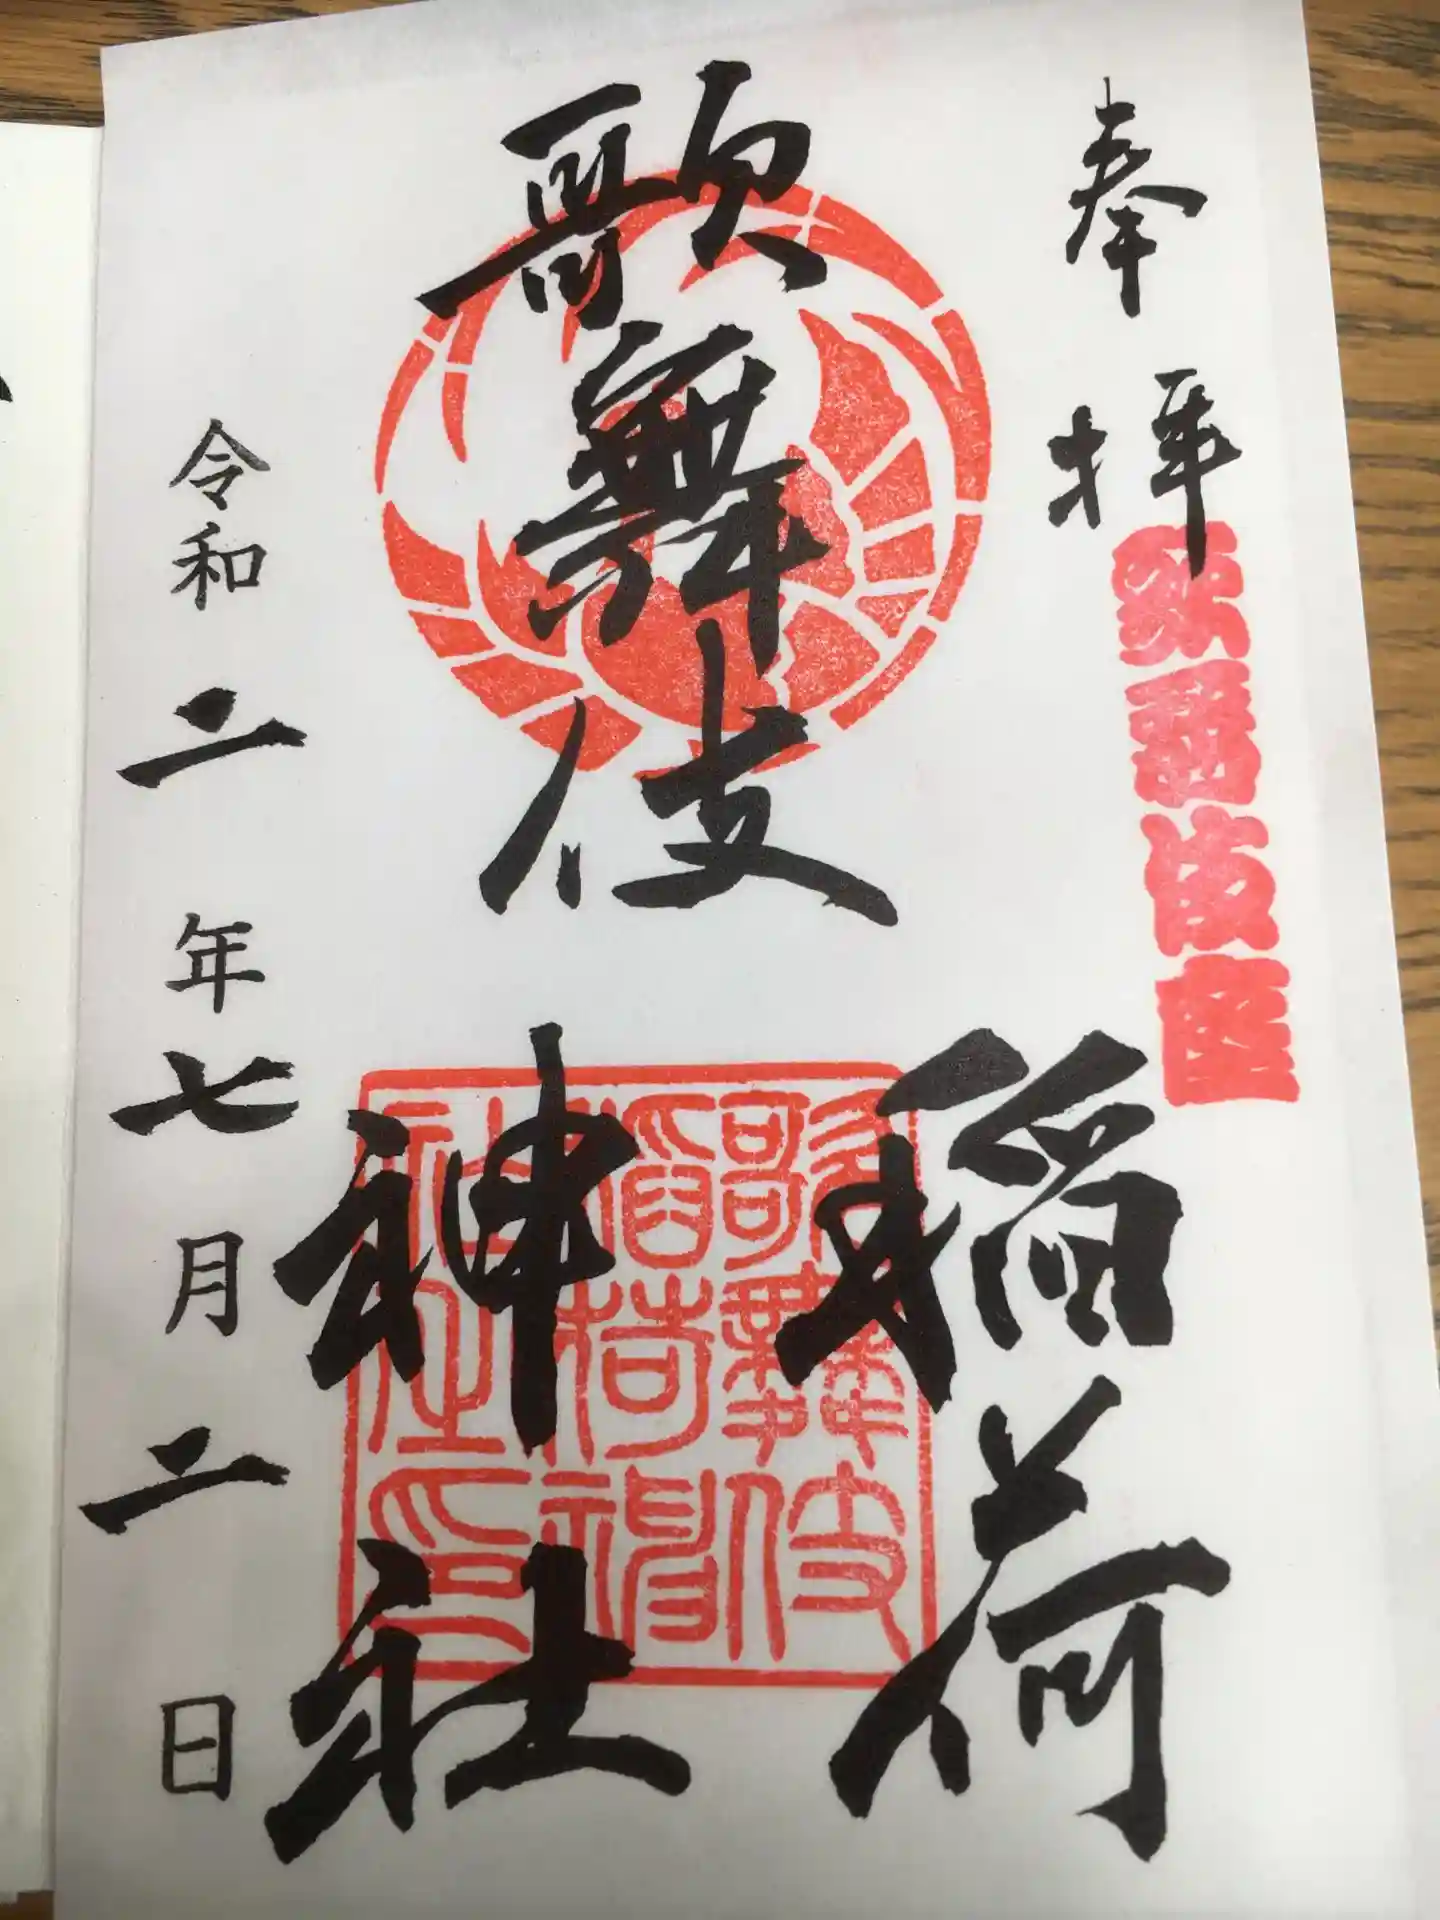 奉拝
歌舞伎座
歌舞伎
稲荷
神社
歌舞伎
稲荷神
社之印
令和二年七月二日